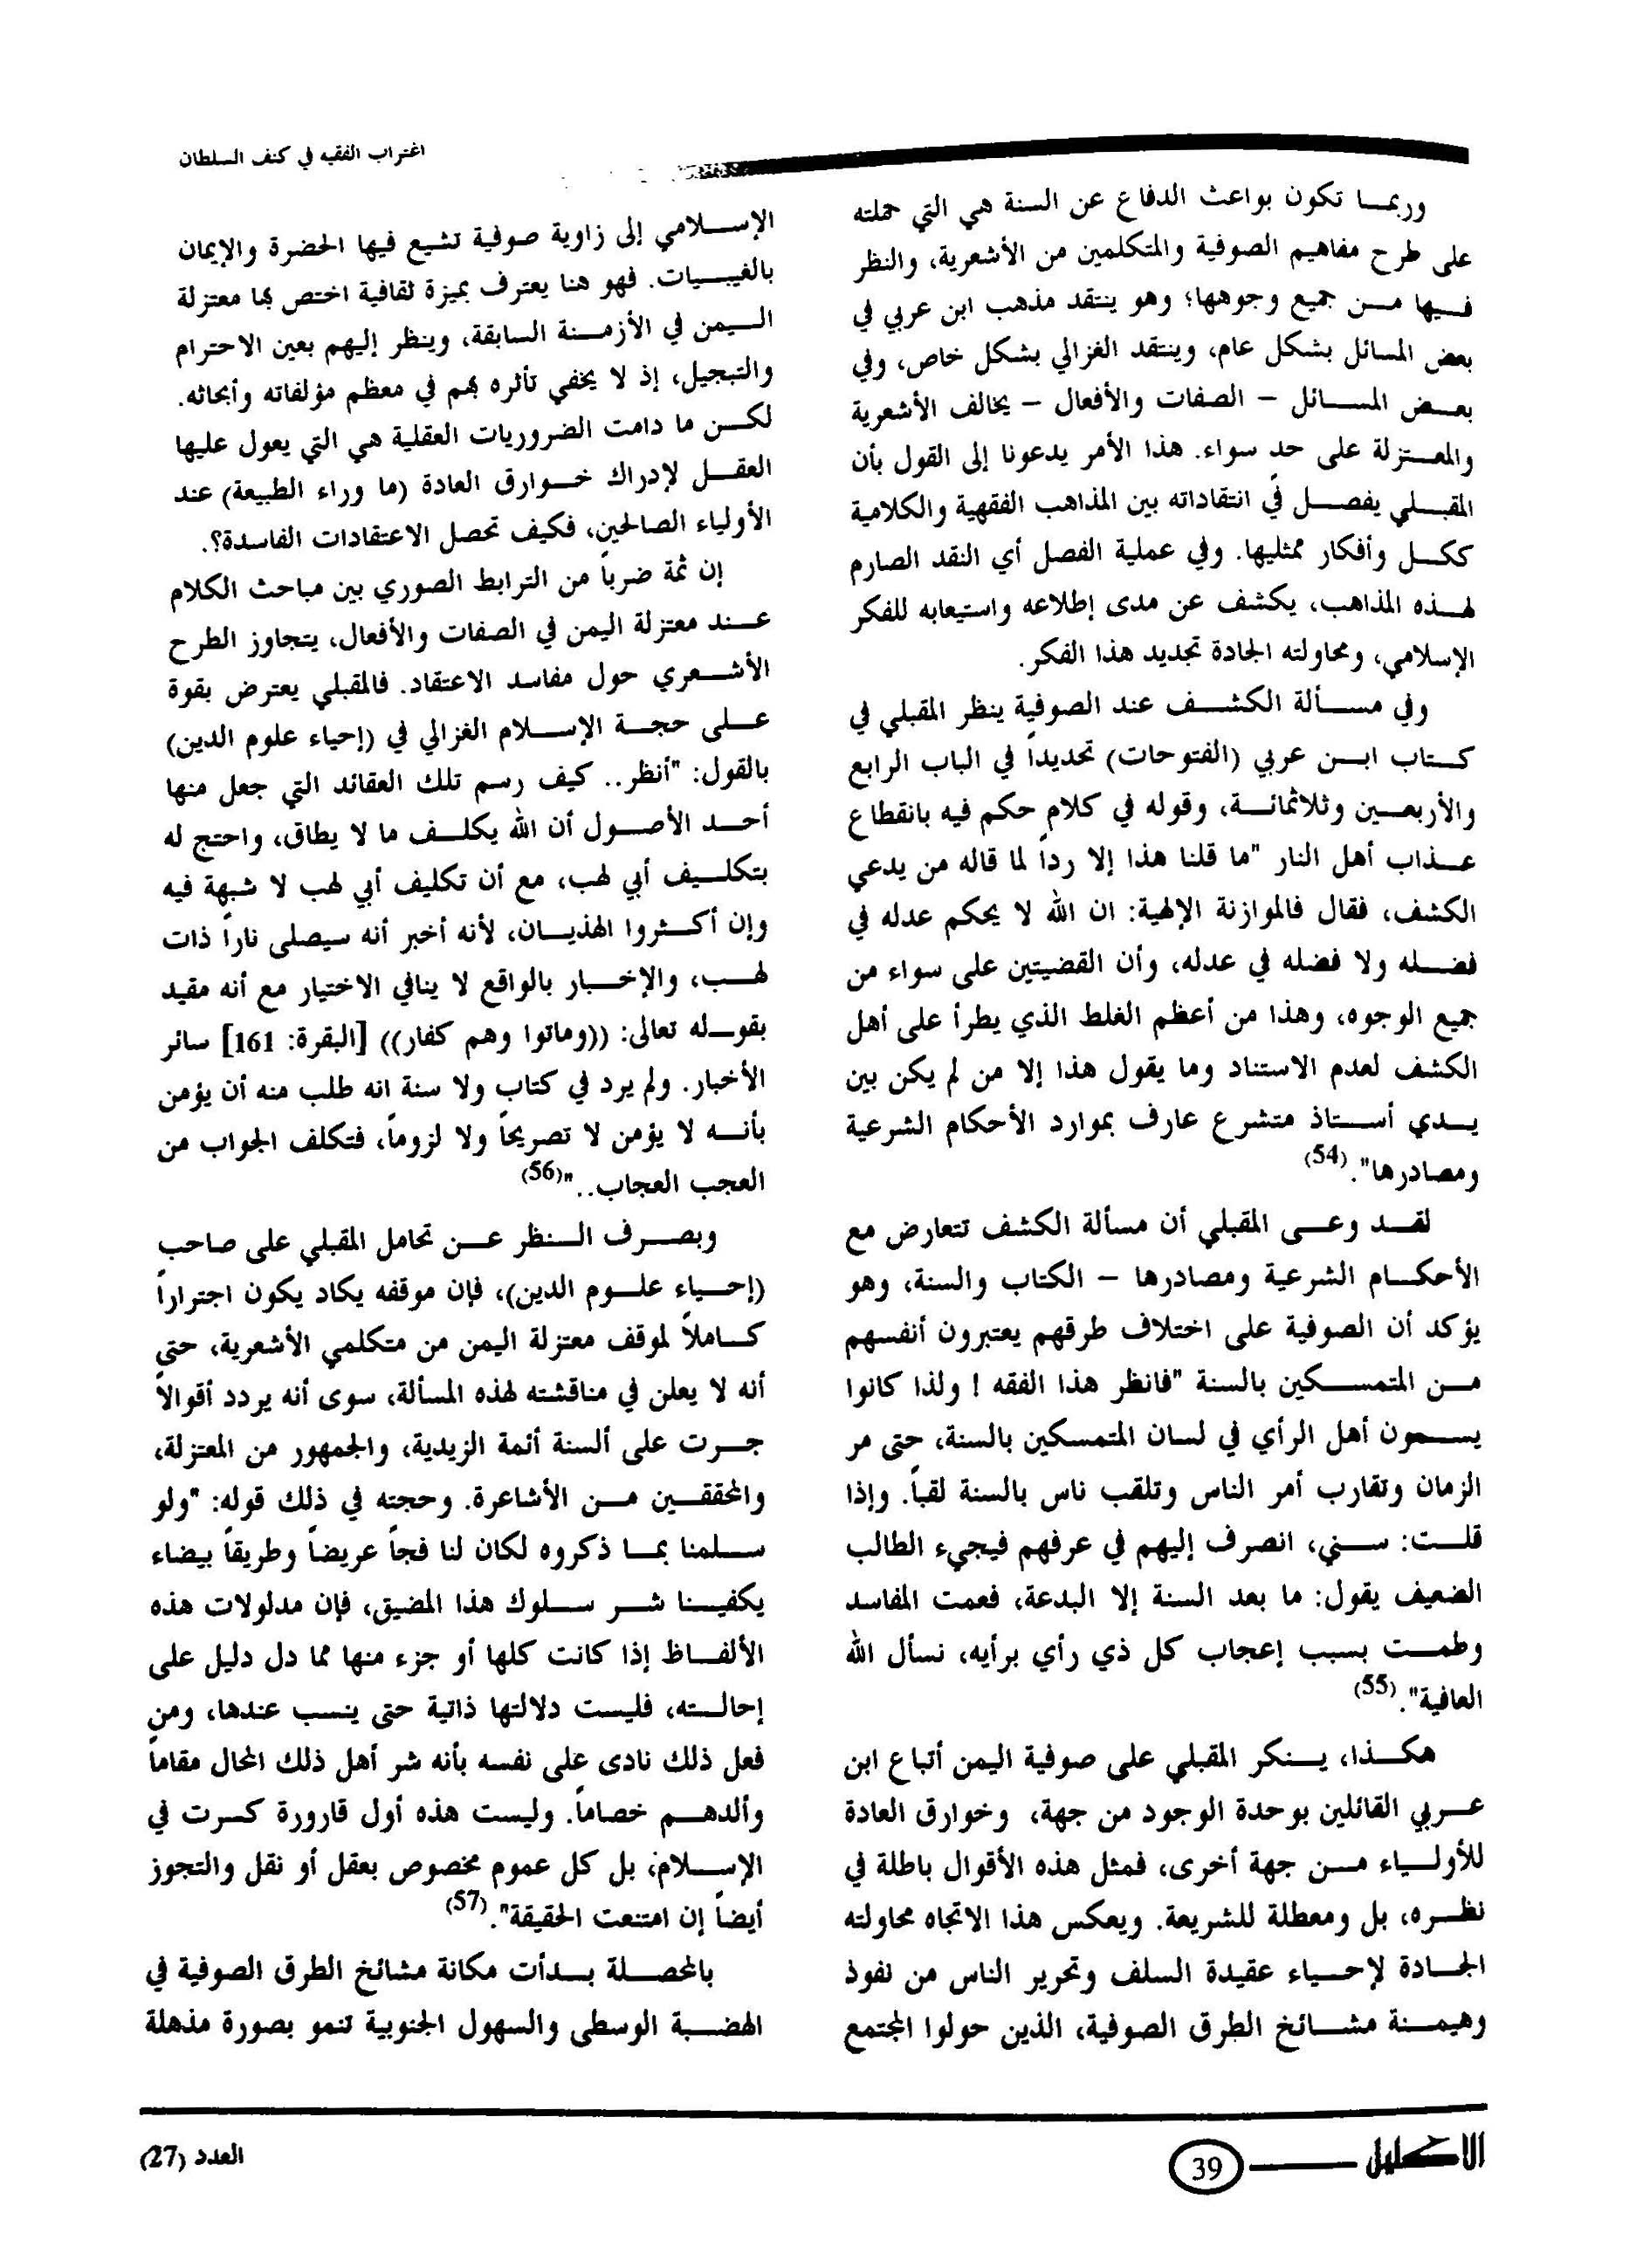 اغتراب الفقيه في كنف السلطان
وربما تكون بواعث الدفاع عن السنة هي التي حملته
على طرح مفاهيم الصوفية والمتكلمين من الأشعرية، والنظر
فيها من جميع وجوهها؛ وهو ينتقد مذهب ابن عربي في
بعض المسائل بشكل عام، وينتقد الغزالي بشكل خاص، وفي
بعض المسائل – الصفات والأفعال – يخالف الأشعرية
والمعتزلة على حدٍ سواء. هذا الأمر يدعونا إلى القول بأن
المقبلي يفصل في انتقاداته بين المذاهب الفقهية والكلامية
ككل وأفكار ممثليها. وفي عملية الفصل أي النقد الصارم
لهذه المذاهب، يكشف عن مدى إطلاعه واستيعابه للفكر
الإسلامي، ومحاولته الجادة تجديد هذا الفكر.
وفي مسألة الكشف عند الصوفية ينظر المقبلي في
كتاب ابن عربي (الفتوحات) تحديداً في الباب الرابع
والأربعين وثلاثمائة، وقوله في كلامٍ حكم فيه بانقطاع
عذاب أهل النار "ما قلنا هذا إلا رداً لما قاله من يدعي
الكشف، فقال فالموازنة الإلهية: ان الله لا يحكم عدله في
فضله ولا فضله في عدله، وأن القضيتين على سواء من
جميع الوجوه، وهذا من أعظم الغلط الذي يطرأ على أهل
الكشف لعدم الاستناد وما يقول هذا إلا من لم يكن بين
يدي أستاذ متشرع عارف بموارد الأحكام الشرعية
ومصادرها".(54)
لقد وعى المقبلي أن مسألة الكشف تتعارض مع
الأحكام الشرعية ومصادرها – الكتاب والسنة، وهو
يؤكد أن الصوفية على اختلاف طرقهم يعتبرون أنفسهم
من المتمسكين بالسنة "فانظر هذا الفقه ! ولذا كانوا
يسمون أهل الرأي في لسان المتمسكين بالسنة، حتى مر
الزمان وتقارب أمر الناس وتلقب ناس بالسنة لقباً. وإذا
قلت: سني، انصرف إليهم في عرفهم فيجيء الطالب
الضعيف يقول: ما بعد السنة إلا البدعة، فعمت المفاسد
وطمت بسبب إعجاب كل ذي رأي برأيه، نسأل الله
العافية".(55)
هكذا، ينكر المقبلي على صوفية اليمن أتباع ابن
عربي القائلين بوحدة الوجود من جهة، وخوارق العادة
للأولياء من جهة أخرى، فمثل هذه الأقوال باطلة في
نظره، بل ومعطلة للشريعة. ويعكس هذا الاتجاه محاولته
الجادة لإحياء عقيدة السلف وتحرير الناس من نفوذ
وهيمنة مشائخ الطرق الصوفية، الذين حولوا المجتمع
الإسلامي إلى زاوية صوفية تشيع فيها الحضرة والإيمان
بالغيبيات. فهو هنا يعترف بميزة ثقافية اختص بها معتزلة
اليمن في الأزمنة السابقة، وينظر إليهم بعين الاحترام
والتبجيل، إذ لا يخفي تأثره بهم في معظم مؤلفاته وأبحاثه.
لكن ما دامت الضروريات العقلية هي التي يعول عليها
العقل لإدراك خوارق العادة (ما وراء الطبيعة) عند
الأولياء الصالحين، فكيف تحصل الاعتقادات الفاسدة؟.
إن ثمة ضرباً من الترابط الصوري بين مباحث الكلام
عند معتزلة اليمن في الصفات والأفعال، يتجاوز الطرح
الأشعري حول مفاسد الاعتقاد. فالمقبلي يعترض بقوة
على حجة الإسلام الغزالي في (إحياء علوم الدين)
بالقول: "أنظر.. كيف رسم تلك العقائد التي جعل منها
أحد الأصول أن الله يكلف ما لا يطاق، واحتج له
بتكليف أبي لهب، مع أن تكليف أبي لهب لا شبهة فيه
وإن أكثروا الهذيان، لأنه أخبر أنه سيصلى ناراً ذات
لهب، والإخبار بالواقع لا ينافي الاختيار مع أنه مقيد
بقوله تعالى: ((وماتوا وهم كفار)) [البقرة: 161] سائر
الأخبار. ولم يرد في كتاب ولا سنة انه طلب منه أن يؤمن
بأنه لا يؤمن لا تصريحاً ولا لزوماً، فتكلف الجواب من
العجب العجاب.."(56)
وبصرف النظر عن تحامل المقبلي على صاحب
(إحياء علوم الدين)، فإن موقفه يكاد يكون اجتراراً
كاملاً لموقف معتزلة اليمن من متكلمي الأشعرية، حتى
أنه لا يعلن في مناقشته لهذه المسألة، سوى أنه يردد أقوالاً
جرت على ألسنة أئمة الزيدية، والجمهور من المعتزلة،
والمحققين من الأشاعرة. وحجته في ذلك قوله: "ولو
سلمنا بما ذكروه لكان لنا فجاً عريضاً وطريقاً بيضاء
يكفينا شر سلوك هذا المضيق، فإن مدلولات هذه
الألفاظ إذا كانت كلها أو جزء منها مما دل دليل على
إحالته، فليست دلالتها ذاتية حتى ينسب عندها، ومن
فعل ذلك نادى على نفسه بأنه شر أهل ذلك المحال مقاماً
وألدهم خصاماً. وليست هذه أول قارورة كسرت في
الإسلام، بل كل عموم مخصوص بعقل أو نقل والتجوز
أيضاً إن امتنعت الحقيقة".(57)
بالمحصلة بدأت مكانة مشائخ الطرق الصوفية في
الهضبة الوسطى والسهول الجنوبية تنمو بصورة مذهلة
الاكليل
39
العدد (27)